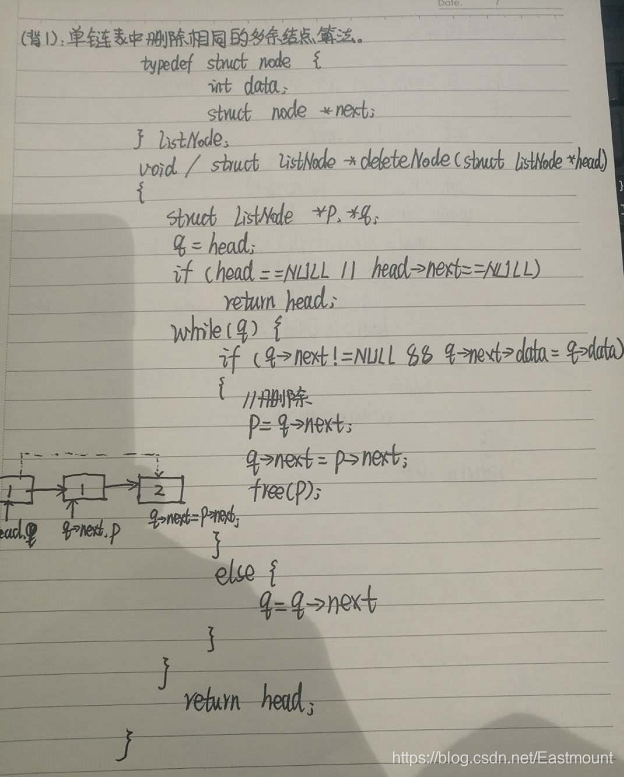 Date.
(背1): 单链表中删除相同的多余结点算法。
typedef struct node {
int data;
struct node *next;
} listNode;
void / struct listNode *deleteNode(struct listNode *head)
{
struct listNode *p, *q;
q = head;
if (head ==NULL || head->next==NULL)
return head;
while(q) {
if (q->next!=NULL && q->next->data = q->data)
{ //删除
p= q->next;
q->next = p->next;
free(p);
1 1 2
head,q q->next,p q->next=p->next;
}
else {
q= q->next
}
}
return head;
}
https://blog.csdn.net/Eastmount